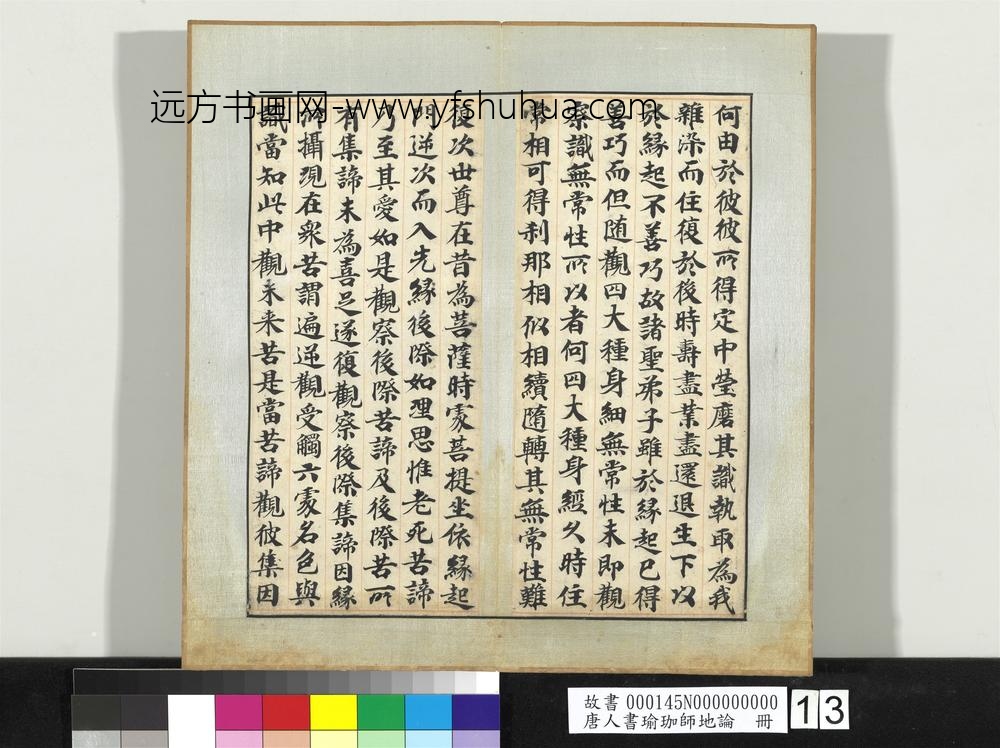 远方书画网-www.yfshuhua.com
何由於彼彼所得定中瑩磨其識執取為我
雜染而住復於後時壽盡業盡還退生下以
於緣起不善巧故諸聖弟子雖於緣起已得
善巧而但随觀四大種身細無常性未即觀
察識無常性所以者何四大種身經久時住
常相可得刹那相似相續随轉其無常性難
復次世尊在昔為菩薩時處菩提坐依緣起
門逆次而入先緣後際如理思惟老死苦諦
乃至其愛如是觀察後際苦諦及後際苦所
有集諦未為喜足遂復觀察後際集諦因緣
所攝現在衆苦謂遍逆觀受觸六處名色與
識當知此中觀未来苦是當苦諦觀彼集因
故書 000145N000000000
唐人書瑜珈師地論 冊
13